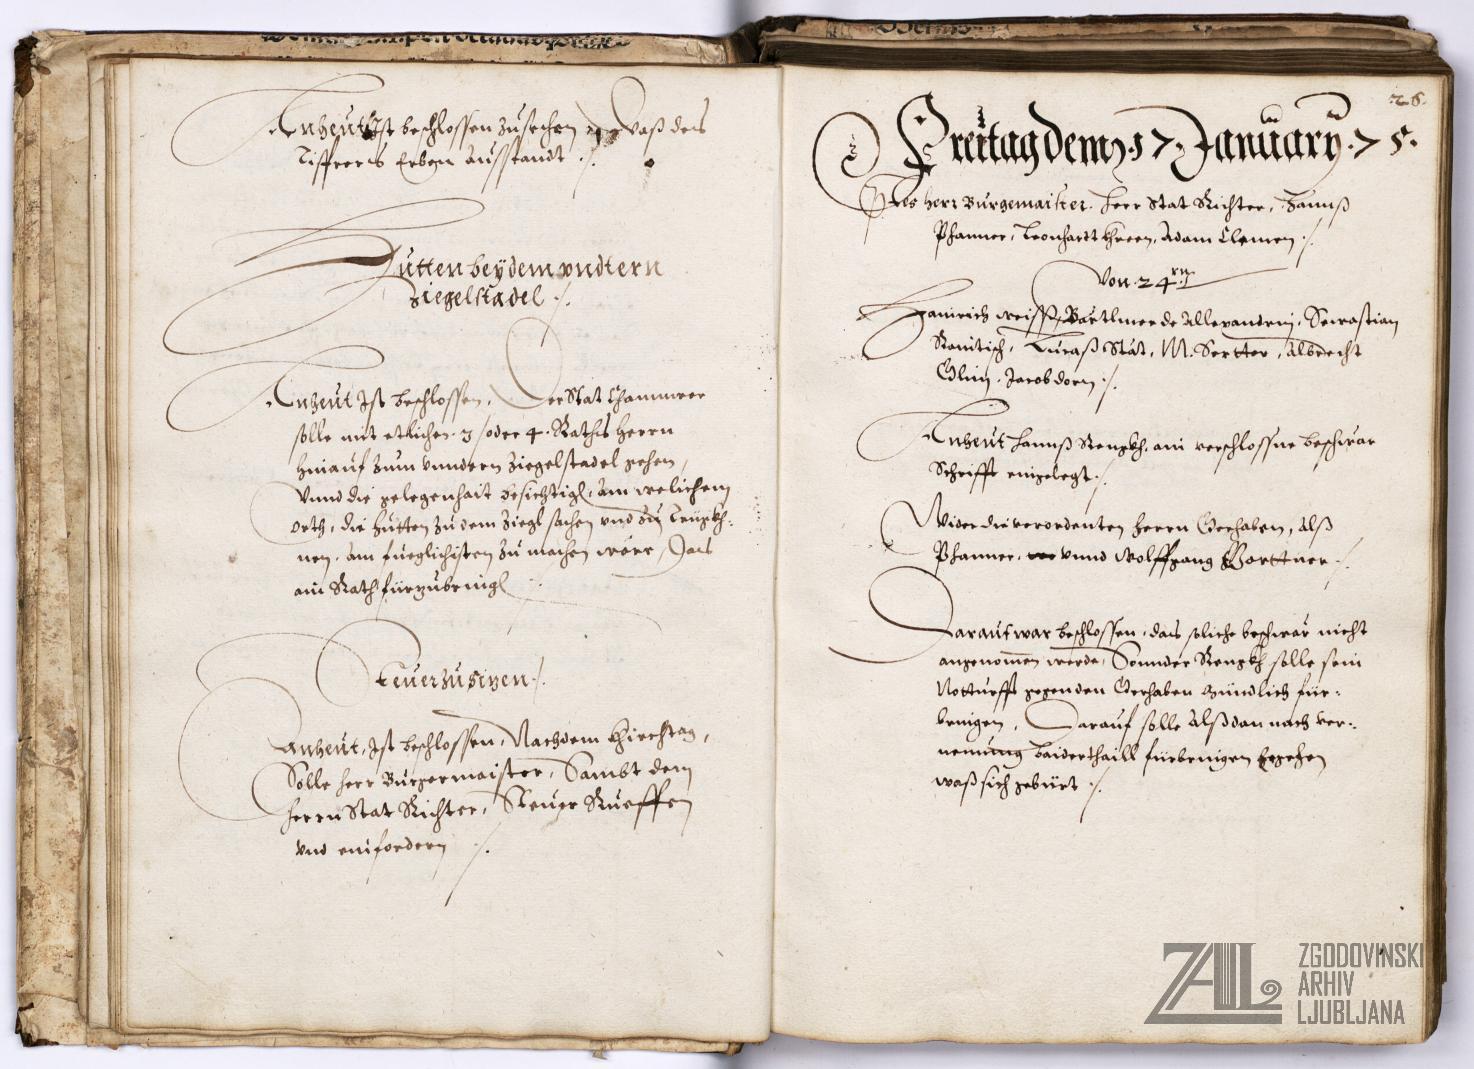 Anheut Ist beschlossen zusechen, waß des
Tiffrers Erben Ausstandt ./.
Hütten beÿ dem vndtern
Ziegelstadel ./.
Anheut Ist beschlossen, Der Stat Chammrer
solle mit etlichen 3 oder 4 Raths herrn
hinauf zum vnndern Ziegelstadel gehen,
Vnnd die gelegenhait besichtign, Am welichem
orth, die hütten zu dem Ziegl sachen vnd zu Trüpkh-
nen, am fueglichisten zu machen were, Das
ain Rath fürzubringn
Steuer
Anheut, Ist beschlossen, Nach dem Khirchtag,
Solle herr Burgermaister, Sambt dem
herrn Stat Richter, Steuer Rueffen
vnd einfordern ./.
26.
Freitag dem 17 January 75.
Pres herr Burgemaister. herr Stat Richter, Hannß
Phanner, Leonhardt Chreen, Adam Clemen ./.
Von 24rn
Hainrich Weiss, Bartlmee de Allexandrin, Sewastian
Ranitisch, Lucaß Stat, M. Sertter, Albrecht
Glin, Jacob dorn ./.
Anheut hannß Renpkh, ain verschlossne beschwär
Schrifft eingelegt ./.
Wider die verordenten herrn Gerhaben, Alß
Phanner, vnnd Wolffgang Gorttner ./.
Darauf war beschlossen, das soliche beschwär nicht
angenomen werde, Sonnder Renpkh solle sein
Notturfft gegen den Gerhaben mündlich für-
bringen, Darauf solle Alß dan nach ver-
nemung baider thaill fürbringen
waß sich gebürt ./.
ZAL
ZGODOVINSKI
ARHIV
LJUBLJANA